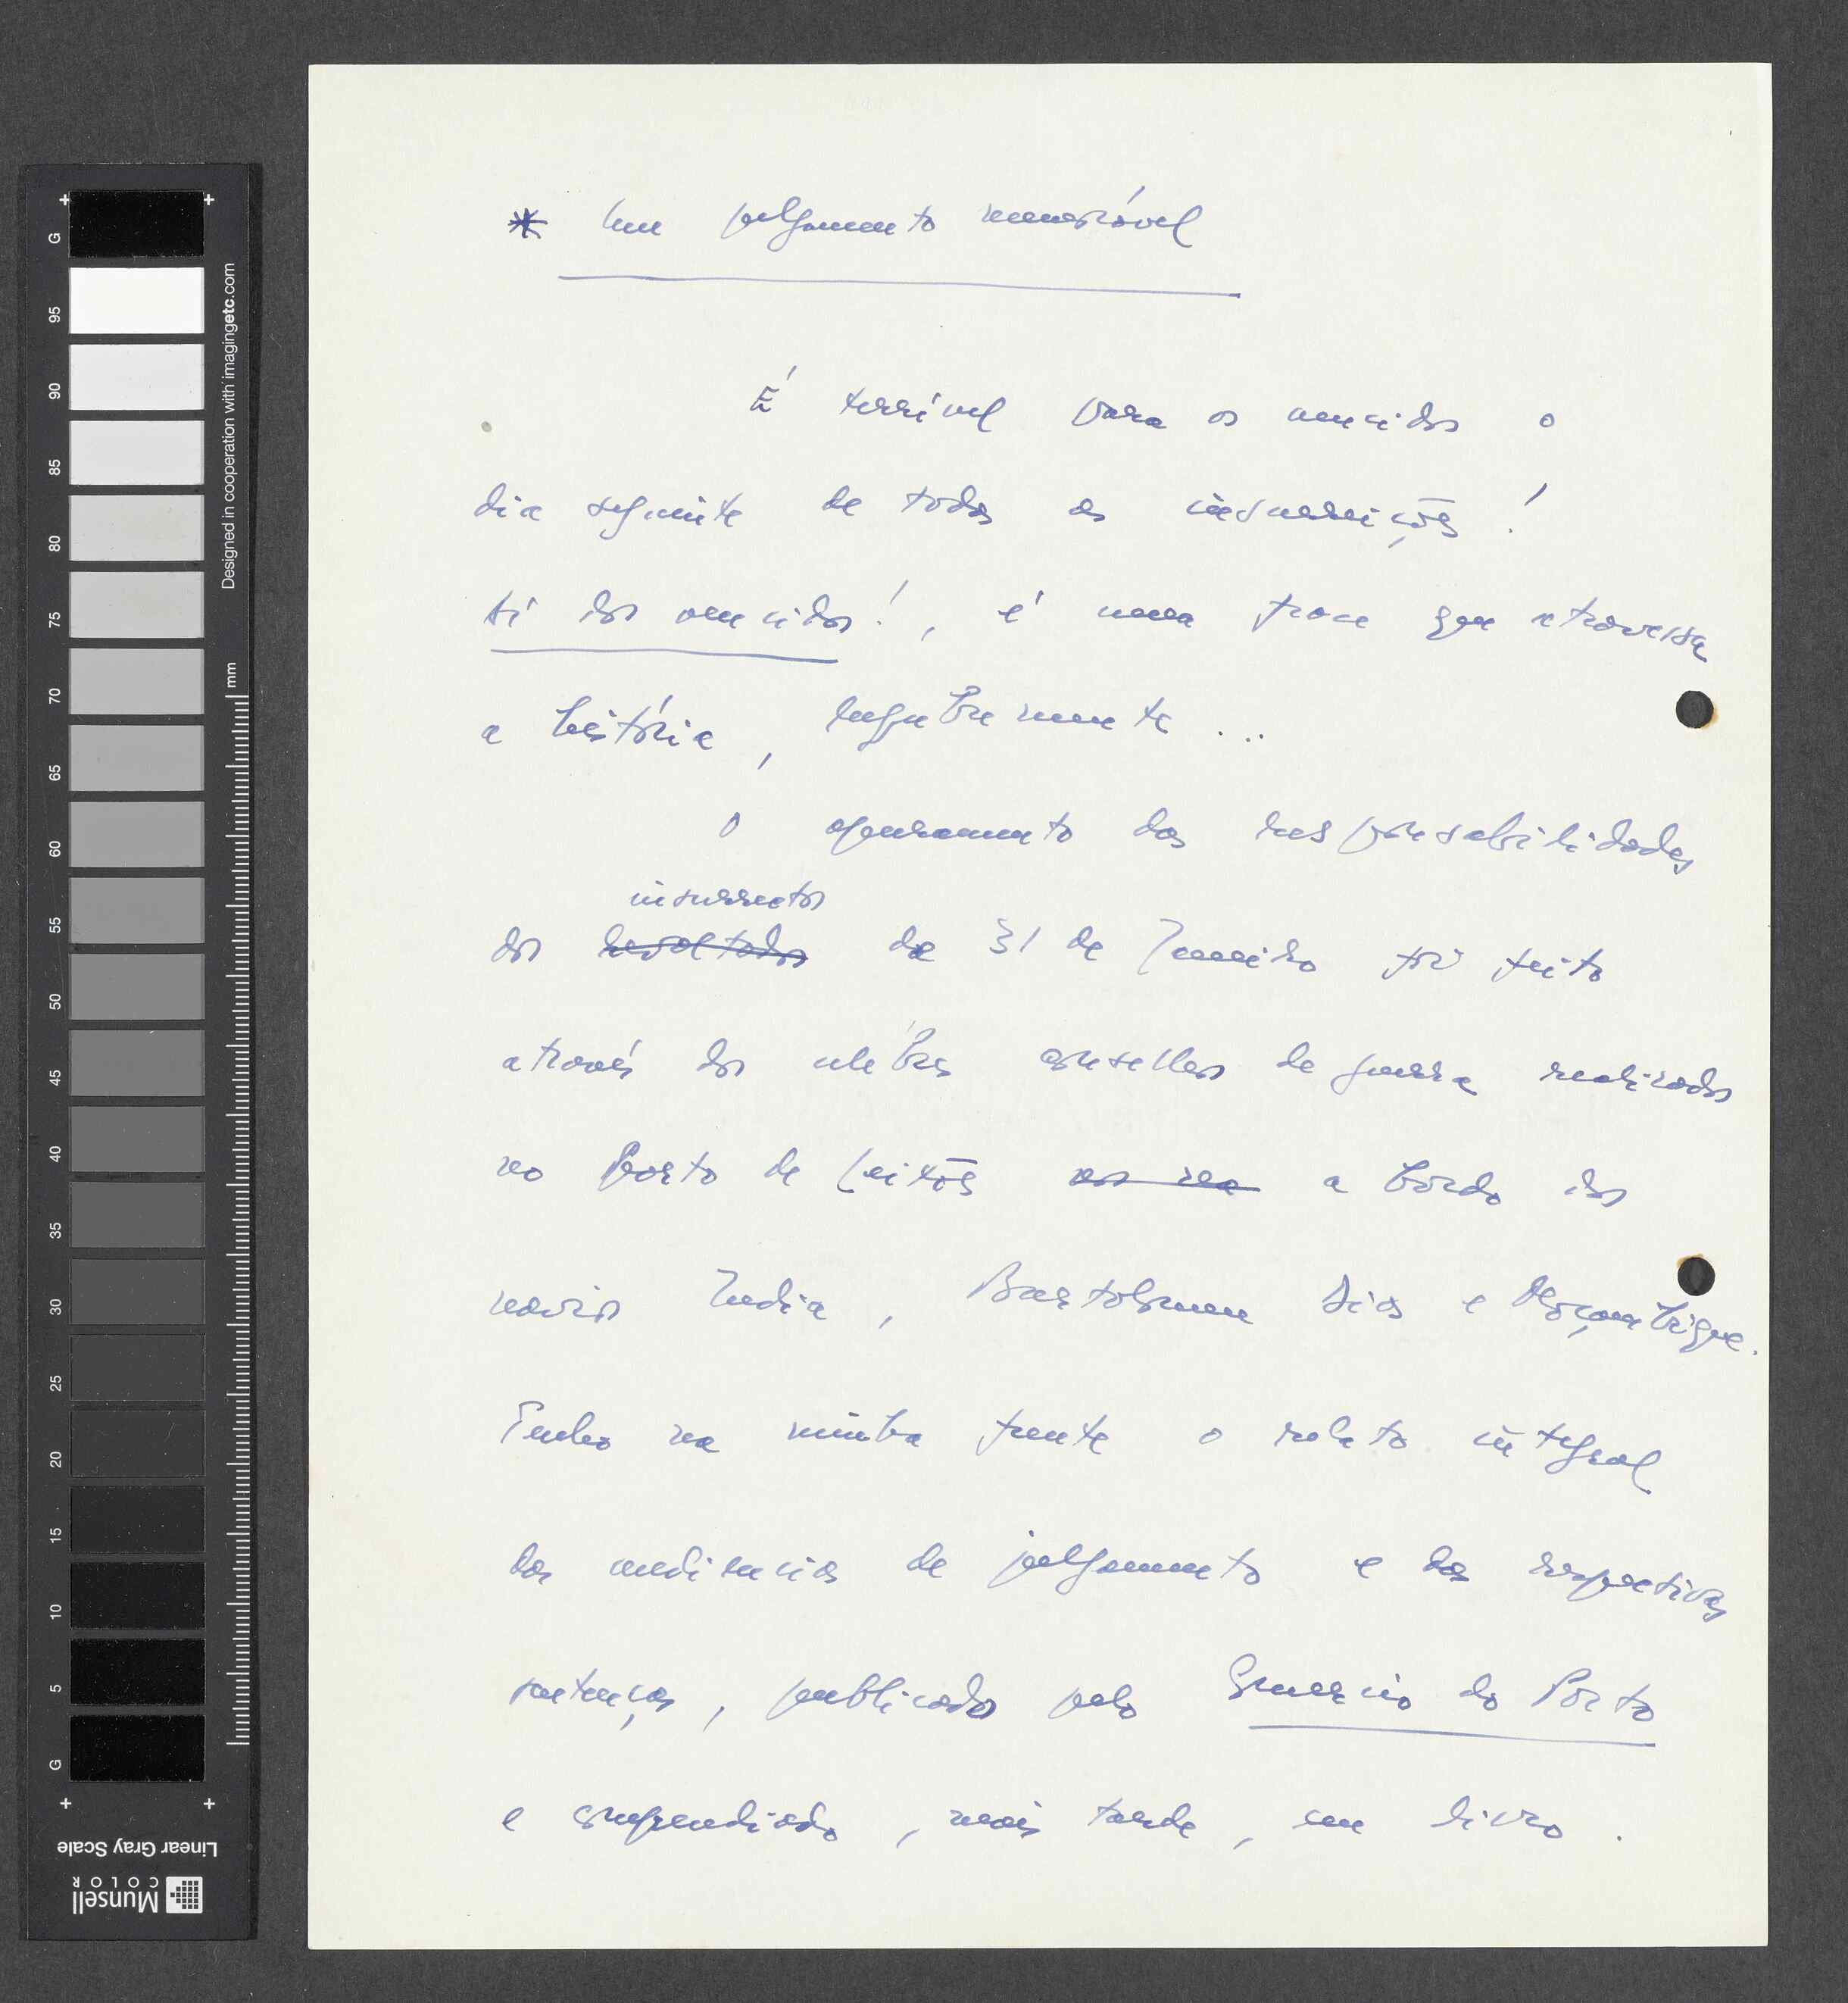 * Um julgamento memorável
É terrível para os vencidos o
dia seguinte de todas as insurreições!
Ai dos vencidos!, é uma frase que atravessa
a história, lugubremente ...
O apuramento das responsabilidades
insurrectos
dos revoltados de 31 de Janeiro foi feito
através dos célebres conselhos de guerra realizados
no Porto de Leixões a bordo dos
navios India, Bartolomeu Dias e Moçambique.
Tenho na minha frente o relato integral
das audiencias de julgamento e das respectivas
sentenças, publicado pelo Comercio do Porto
e compendiado, mais tarde, em livro.
G
95
90
85
80
75
70
65
60
55
50
45
40
35
30
25
20
15
10
5
G
Designed in cooperation with imagingetc.com
mm
Linear Gray Scale
Munsell
COLOR